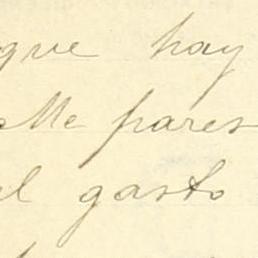 que hay
Me pares
el gasto